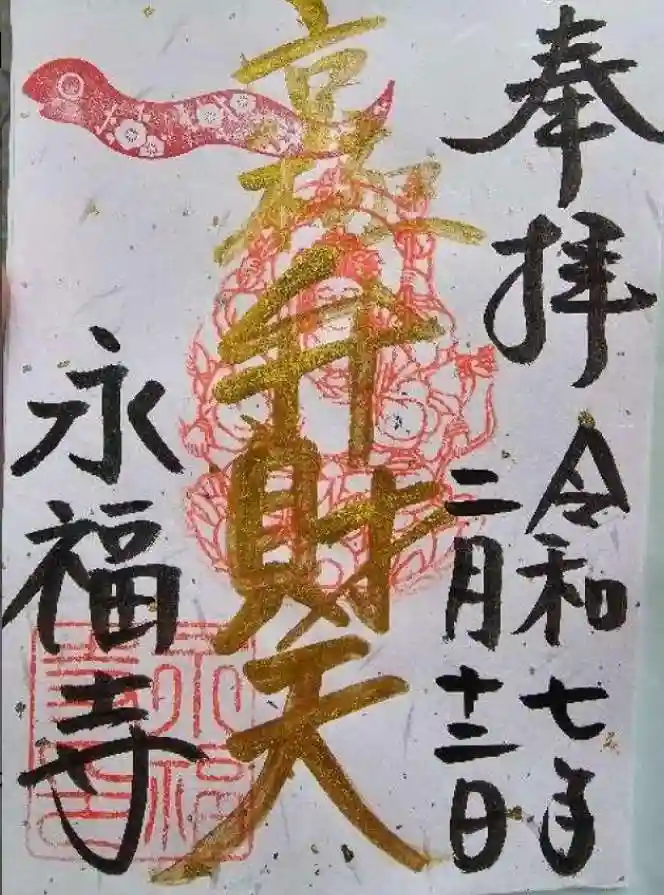 奉拝
令和七年
二月十二日
京極弁財天
永福寺